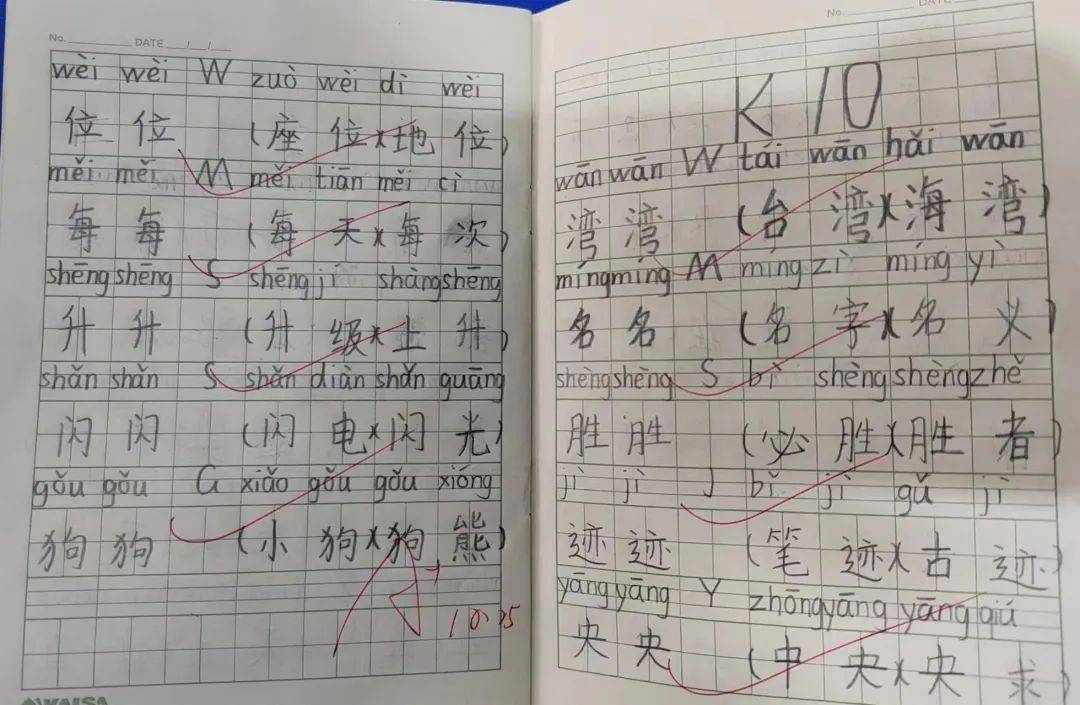 No. DATE / /
wèi wèi W zuò wèi dì wèi
位 位 (座 位)(地 位)
měi měi M měi tiān měi cì
每 每 (每 天)(每 次)
shēng shēng S shēng jí shàng shēng
升 升 (升 级)(上 升)
shǎn shǎn S shǎn diàn shǎn guāng
闪 闪 (闪 电)(闪 光)
gǒu gǒu G xiǎo gǒu gǒu xióng
狗 狗 (小 狗)(狗 熊)
A+
10.25
No. DATE
K 10
wān wān W tái wān hǎi wān
湾 湾 (台 湾)(海 湾)
míng míng M míng zì míng yì
名 名 (名 字)(名 义)
shèng shèng S bì shèng shèng zhě
胜 胜 (必 胜)(胜 者)
jì jì J bǐ jì gǔ jì
迹 迹 (笔 迹)(古 迹)
yāng yāng Y zhōng yāng yāng qiú
央 央 (中 央)(央 求)